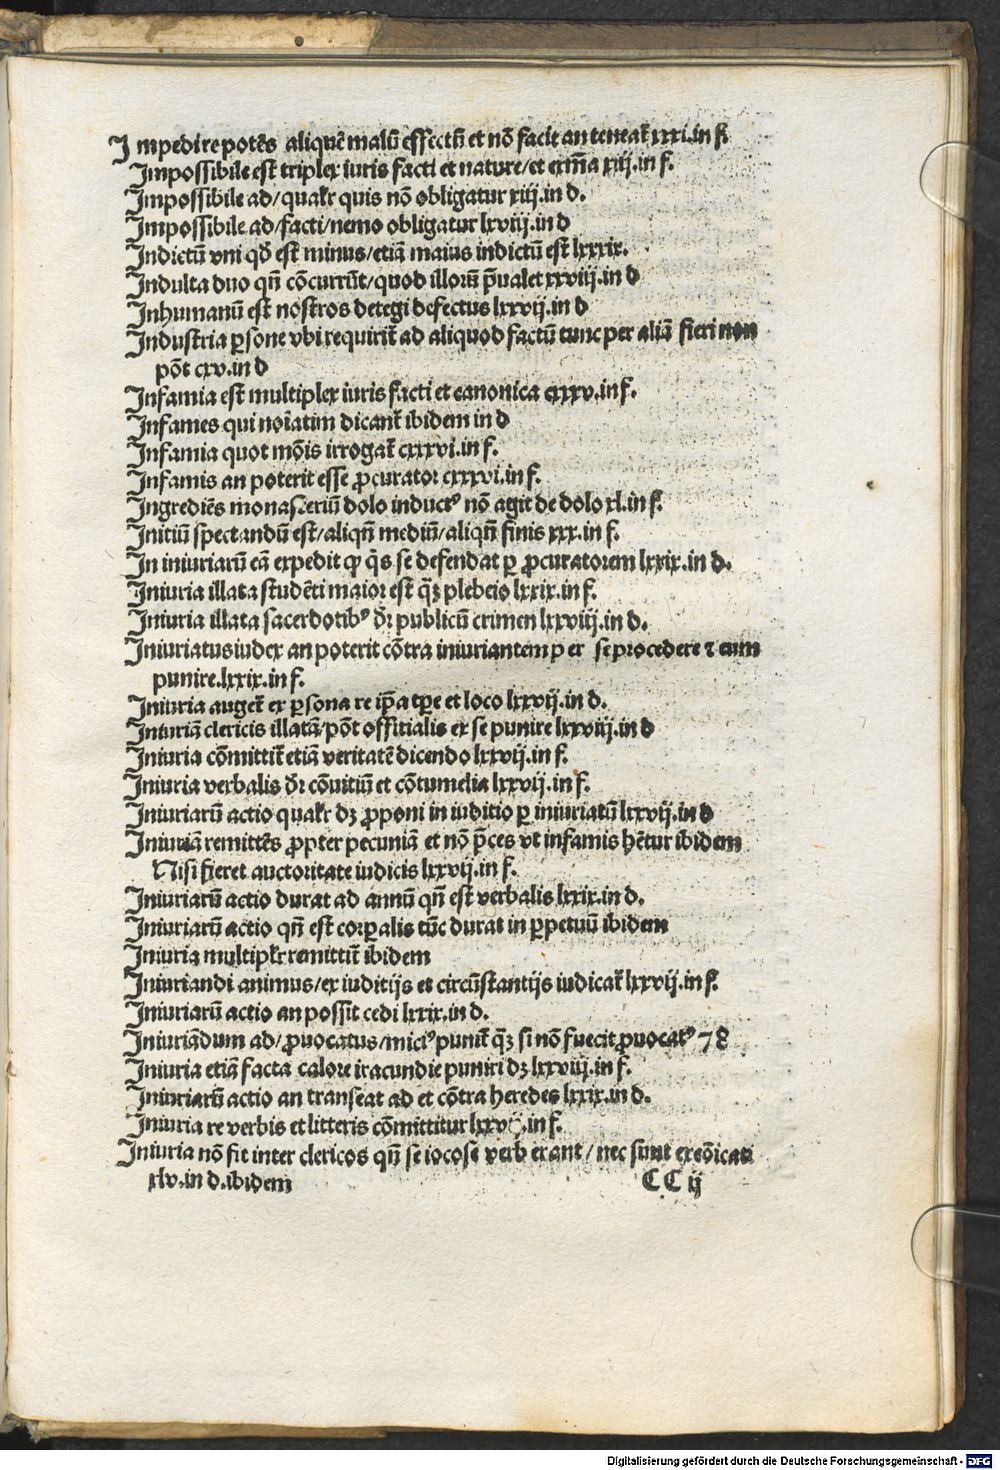 Impedire potēs aliquē malū effectū et nō facit an teneat̄ xxxi.in f.
Impossibile est triplex iuris facti et nature/et exm̄a xiij.in f.
Impossibile ad/qualr̄ quis nō obligatur xiij.in d.
Impossibile ad/facti/nemo obligatur lxviij.in d
Indictū vni qđ est minus/etiā maius indictū est lxxxix.
Indulta duo qn̄ cōcurrūt/quod illorū p̄ualet xxviij.in d
Inhumanū est nostros detegi defectus lxxvij.in d
Industria ꝑsone vbi requirit̄ ad aliquod factū tunc per aliā fieri non
pōt cxv.in d
Infamia est multiplex iuris facti et canonica cxxxv.in f.
Infames qui noīatim dicant̄ ibidem in d
Infamia quot mōis irrogat̄ cxxxvi.in f.
Infamis an poterit esse ꝓcurator cxxxvi.in f.
Ingrediēs monasteriū dolo inductꝰ nō agit de dolo xl.in f.
Initiū spectandū est/aliqn̄ mediū/aliqn̄ finis xxx.in f.
In iniuriarū cā expedit ꝙ q̄s se defendat ꝑ ꝓcuratorem lxxix.in d.
Iniuria illata studēti maior est q̄ꝫ plebeio lxxix.in f.
Iniuria illata sacerdotibꝰ dr̄ publicū crimen lxxviij.in d.
Iniuriatus iudex an poterit cōtra iniuriantem p er se procedere ⁊ eum
punire.lxxix.in f.
Iniuria auget̄ ex ꝑsona re ip̄a tp̄e et loco lxxvij.in d.
Iniuriā clericis illatā/pōt offitialis ex se punire lxxviij.in d
Iniuria cōmittit̄ etiā veritatē dicendo lxxvij.in f.
Iniuria verbalis dr̄ cōuitiū et cōtumelia lxxvij.in f.
Iniuriarū actio qualr̄ dꝫ ꝓponi in iuditio ꝑ iniuriatū lxxvij.in d
Iniuriā remittēs ꝓpter pecuniā et nō p̄ces vt infamis hētur ibidem
Nisi fieret auctoritate iudicis lxxvij.in f.
Iniuriarū actio durat ad annū qn̄ est verbalis lxxix.in d.
Iniuriarū actio qn̄ est corꝑalis tūc durat in ꝑpetuū ibidem
Iniuria multiplr̄ remittit̄ ibidem
Iniuriandi animus/ex iuditijs et circūstantijs iudicat̄ lxxvij.in f.
Iniuriarū actio an possit cedi lxxix.in d.
Iniuriādum ad/ꝓuocatus/miciꝰ punit̄ q̄ꝫ si nō fuecit ꝓuocatꝰ 78
Iniuria etiā facta calore iracundie puniri dꝫ lxxviij.in f.
Iniuriarū actio an transeat ad et cōtra heredes lxxix.in d.
Iniuria re verbis et litteris cōmittitur lxxvij.in f.
Iniuria nō fit inter clericos qn̄ se iocose verb erant / nec sunt excōicati
xlv.in d.ibidem
CC ij
Digitalisierung gefördert durch die Deutsche Forschungsgemeinschaft - DFG